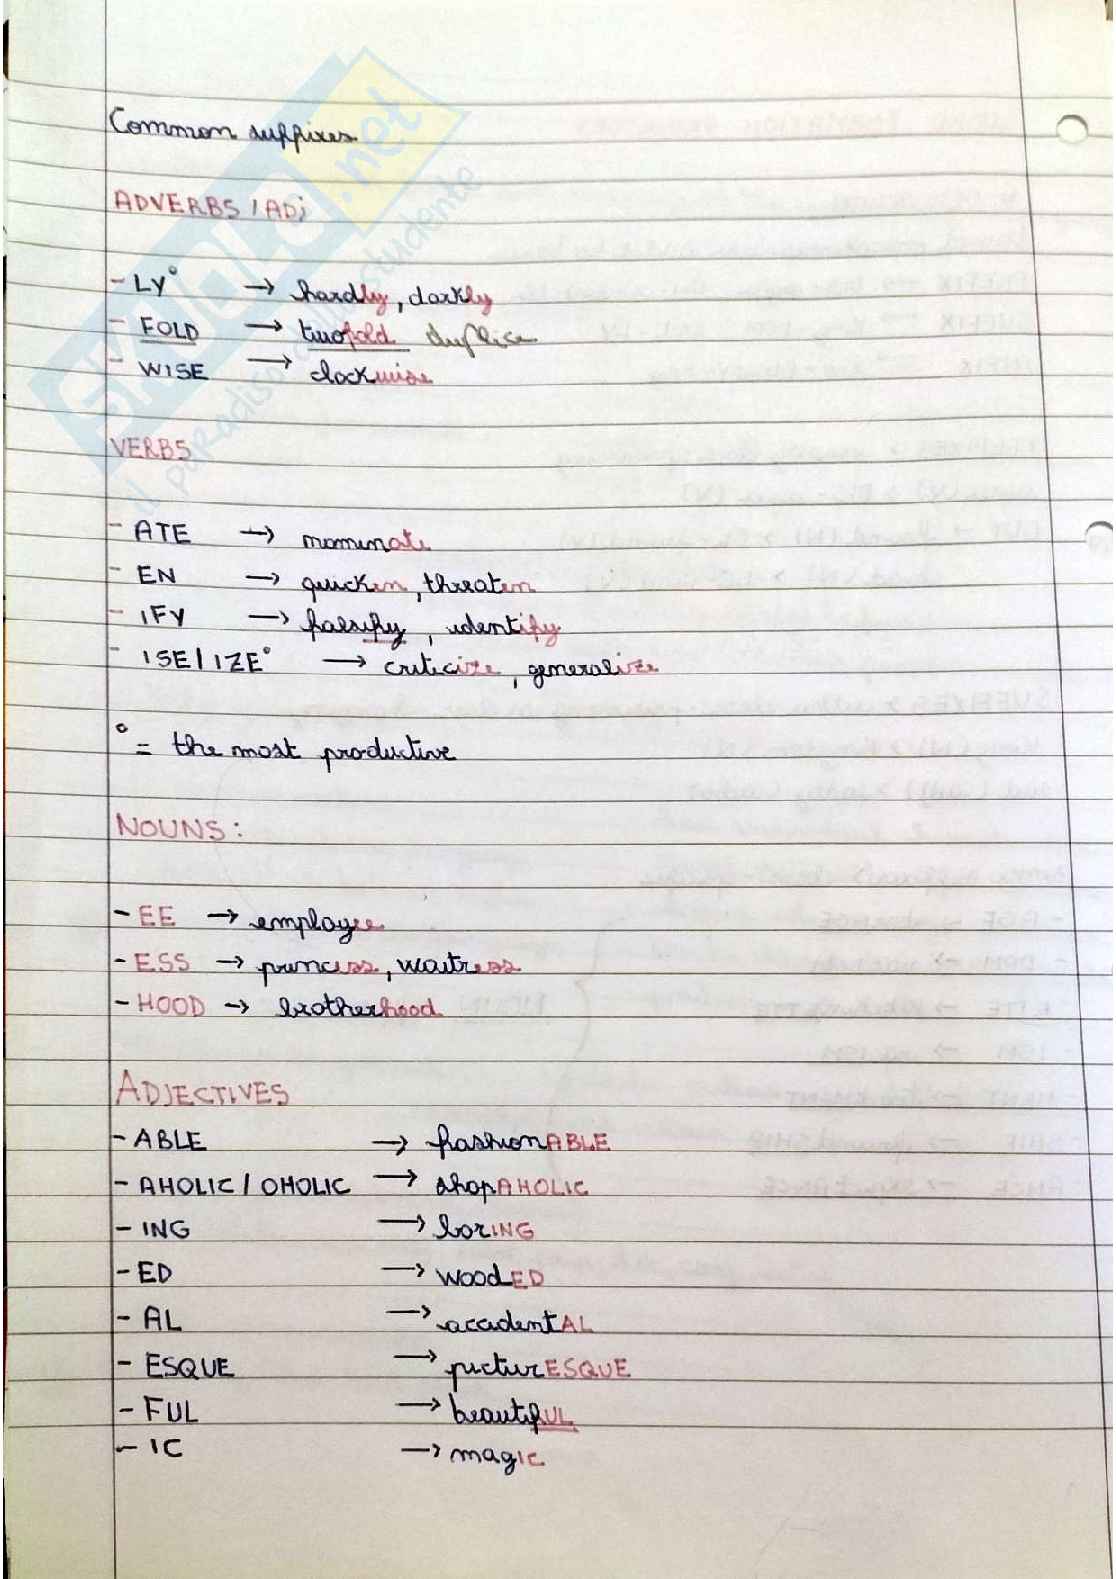 Common suffixes
ADVERBS / ADJ
- LY° → hardly, darkly
- FOLD → twofold duplice
- WISE → clockwise
VERBS
- ATE → nominate
- EN → quicken, threaten
- IFY → falsify, identify
- ISE/IZE° → criticize, generalize
° = the most productive
NOUNS:
- EE → employee
- ESS → princess, waitress
- HOOD → brotherhood
ADJECTIVES
- ABLE → fashionABLE
- AHOLIC / OHOLIC → shopAHOLIC
- ING → borING
- ED → woodED
- AL → accidentAL
- ESQUE → picturESQUE
- FUL → beautifUL
- IC → magIC
SKUOLA.net
il paradiso dello studente